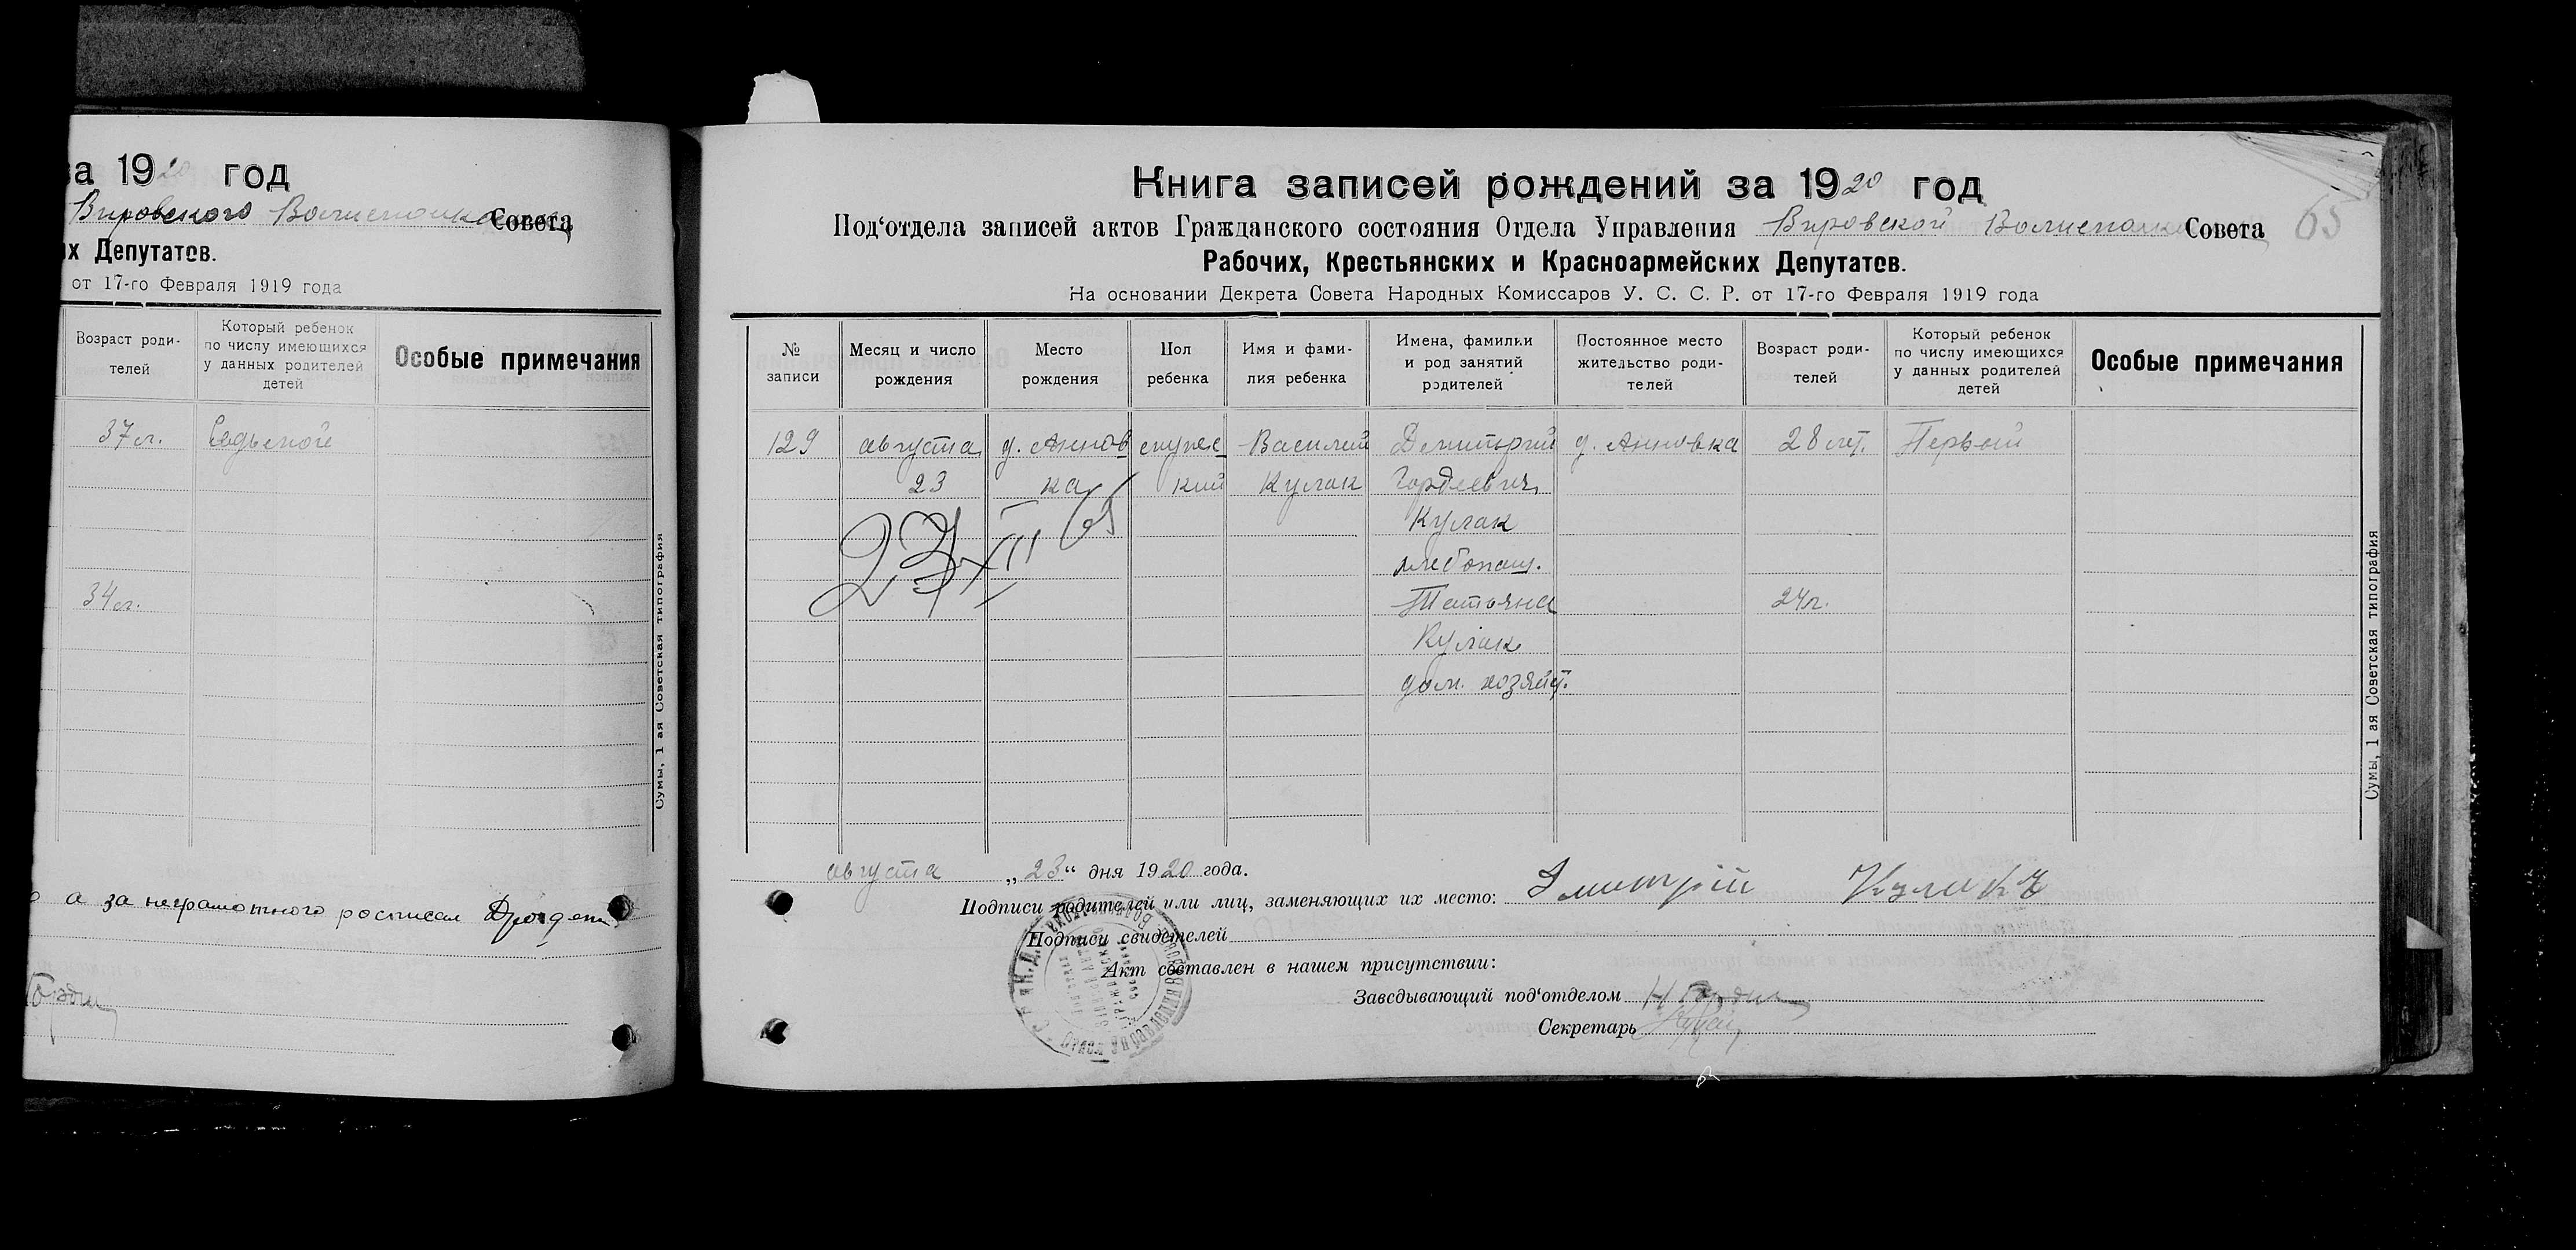 за 1920 год
Вировского Волисполкома Совета
их Депутатов.
от 17-го Февраля 1919 года
Возраст роди-
телей
Который ребенок
по числу имеющихся
у данных родителей
детей
Особые примечания
37 л. Седьмой
34 л.
Сумы, 1 ая Советская типография
а за неграмотного росписал
Книга записей рождений за 1920 год
65
Под‘отдела записей актов Гражданского состояния Отдела Управления Вировской Волисполкома Совета
Рабочих, Крестьянских и Красноармейских Депутатов.
На основании Декрета Совета Народных Комиссаров У. С. С. Р. от 17-го Февраля 1919 года
№
записи
Месяц и число
рождения
Место
рождения
Пол
ребенка
Имя и фами-
лия ребенка
Имена, фамилии
и род занятий
родителей
Постоянное место
жительство роди-
телей
Возраст роди-
телей
Который ребенок
по числу имеющихся
у данных родителей
детей
Особые примечания
129 августа д. Аннов мужес Василий Дмитрий д. Анновка 28 лет. Первый
23 ка кий Кулак Гордеевич
Кулак
хлебопаш.
Татьяна 24 г.
Кулак
дом. хозяйст.
23 XII 65
Сумы, 1 ая Советская типография
августа „23“ дня 1920 года.
Подписи родителей или лиц, заменяющих их место: Дмитрий Кулакъ
Подписи свидетелей
Акт составлен в нашем присутствии:
Заведывающий под‘отделом
Секретарь